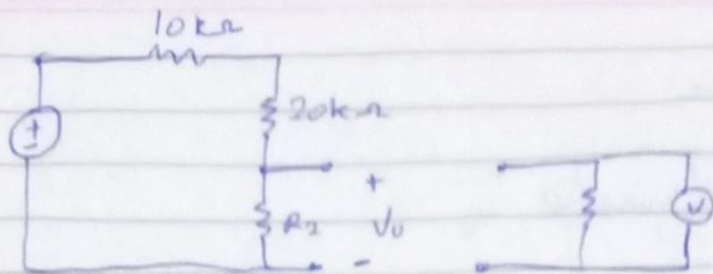 10kΩ
20kΩ
+
-
+
R2
V0
-
V